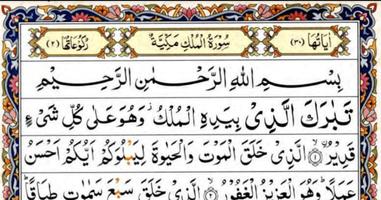 اٰيَاتُهَا (٣٠) سُوْرَةُ الْمُلْكِ مَكِّيَّةٌ رُكُوْعَاتُهَا (٢)
بِسْمِ اللّٰهِ الرَّحْمٰنِ الرَّحِيْمِ
تَبٰرَكَ الَّذِيْ بِيَدِهِ الْمُلْكُ ۫ وَهُوَ عَلٰى كُلِّ شَيْءٍ
قَدِيْرُ ۙ﴿١﴾ الَّذِيْ خَلَقَ الْمَوْتَ وَالْحَيٰوةَ لِيَبْلُوَكُمْ اَيُّكُمْ اَحْسَنُ
عَمَلًا ؕ وَهُوَ الْعَزِيْزُ الْغَفُوْرُ ۙ﴿٢﴾ الَّذِيْ خَلَقَ سَبْعَ سَمٰوٰتٍ طِبَاقًا ؕ